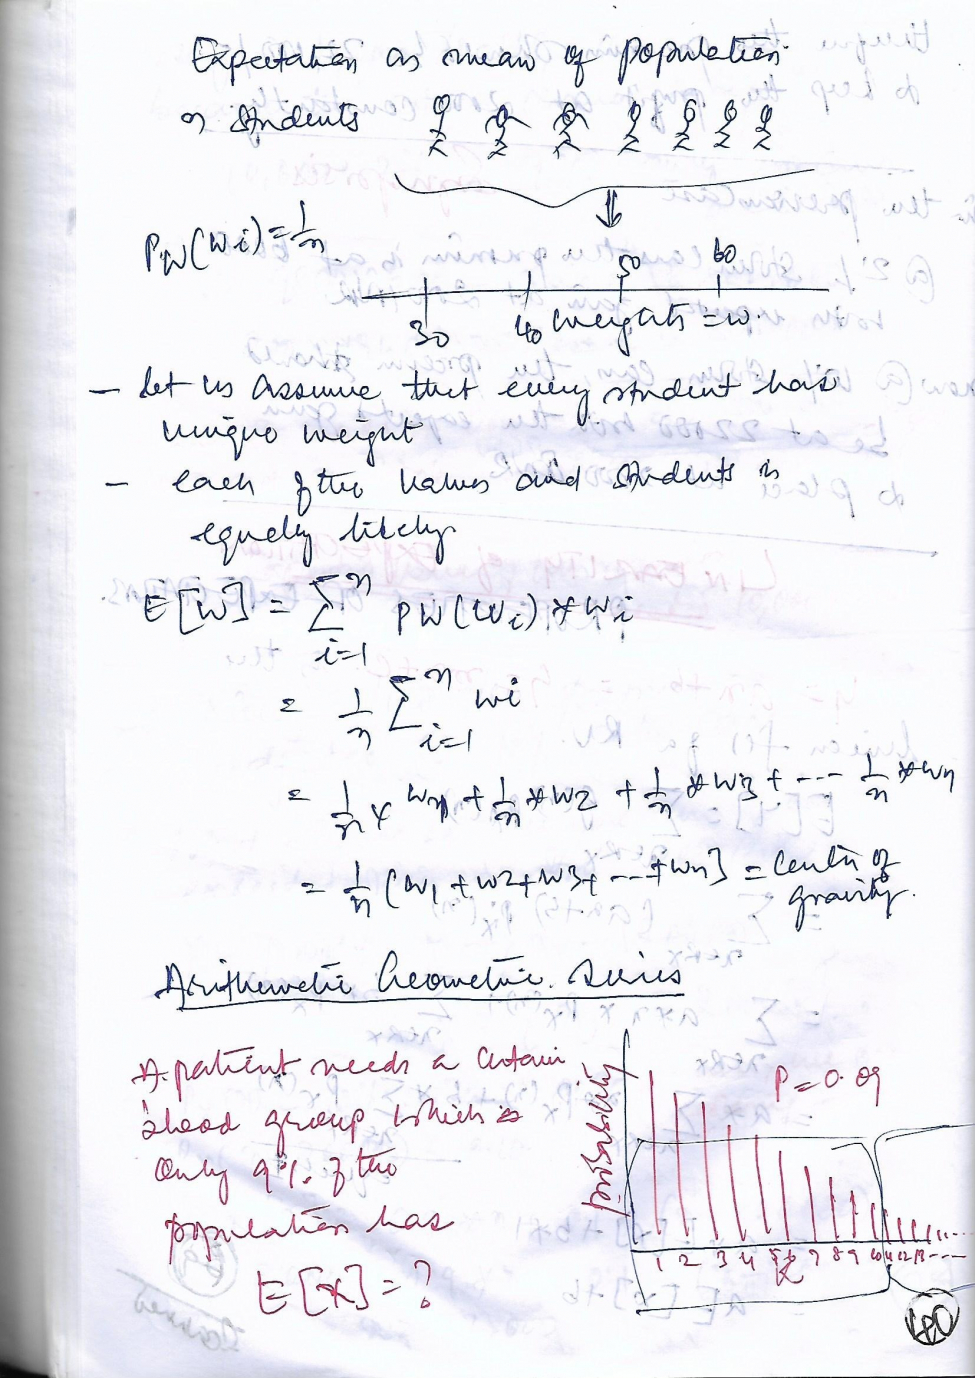 Expectation as mean of population
n students
PW(wi) = 1/n
30 40 50 60
weights = w.
- Let us assume that every student has
unique weight
- each of the values and students is
equally likely
E[W] = Σ i=1 n PW(wi) * wi
= 1/n Σ i=1 n wi
= 1/n × w1 + 1/n * w2 + 1/n * w3 + ... 1/n * wn
= 1/n (w1 + w2 + w3 + ... + wn] = Center of
gravity.
Arithmetic Geometric Series
A patient needs a certain
blood group which is
only 9% of the
population has
E[X] = ?
P = 0.09
probability
1 2 3 4 5 6 7 8 9 10 11 12 13 ....
180